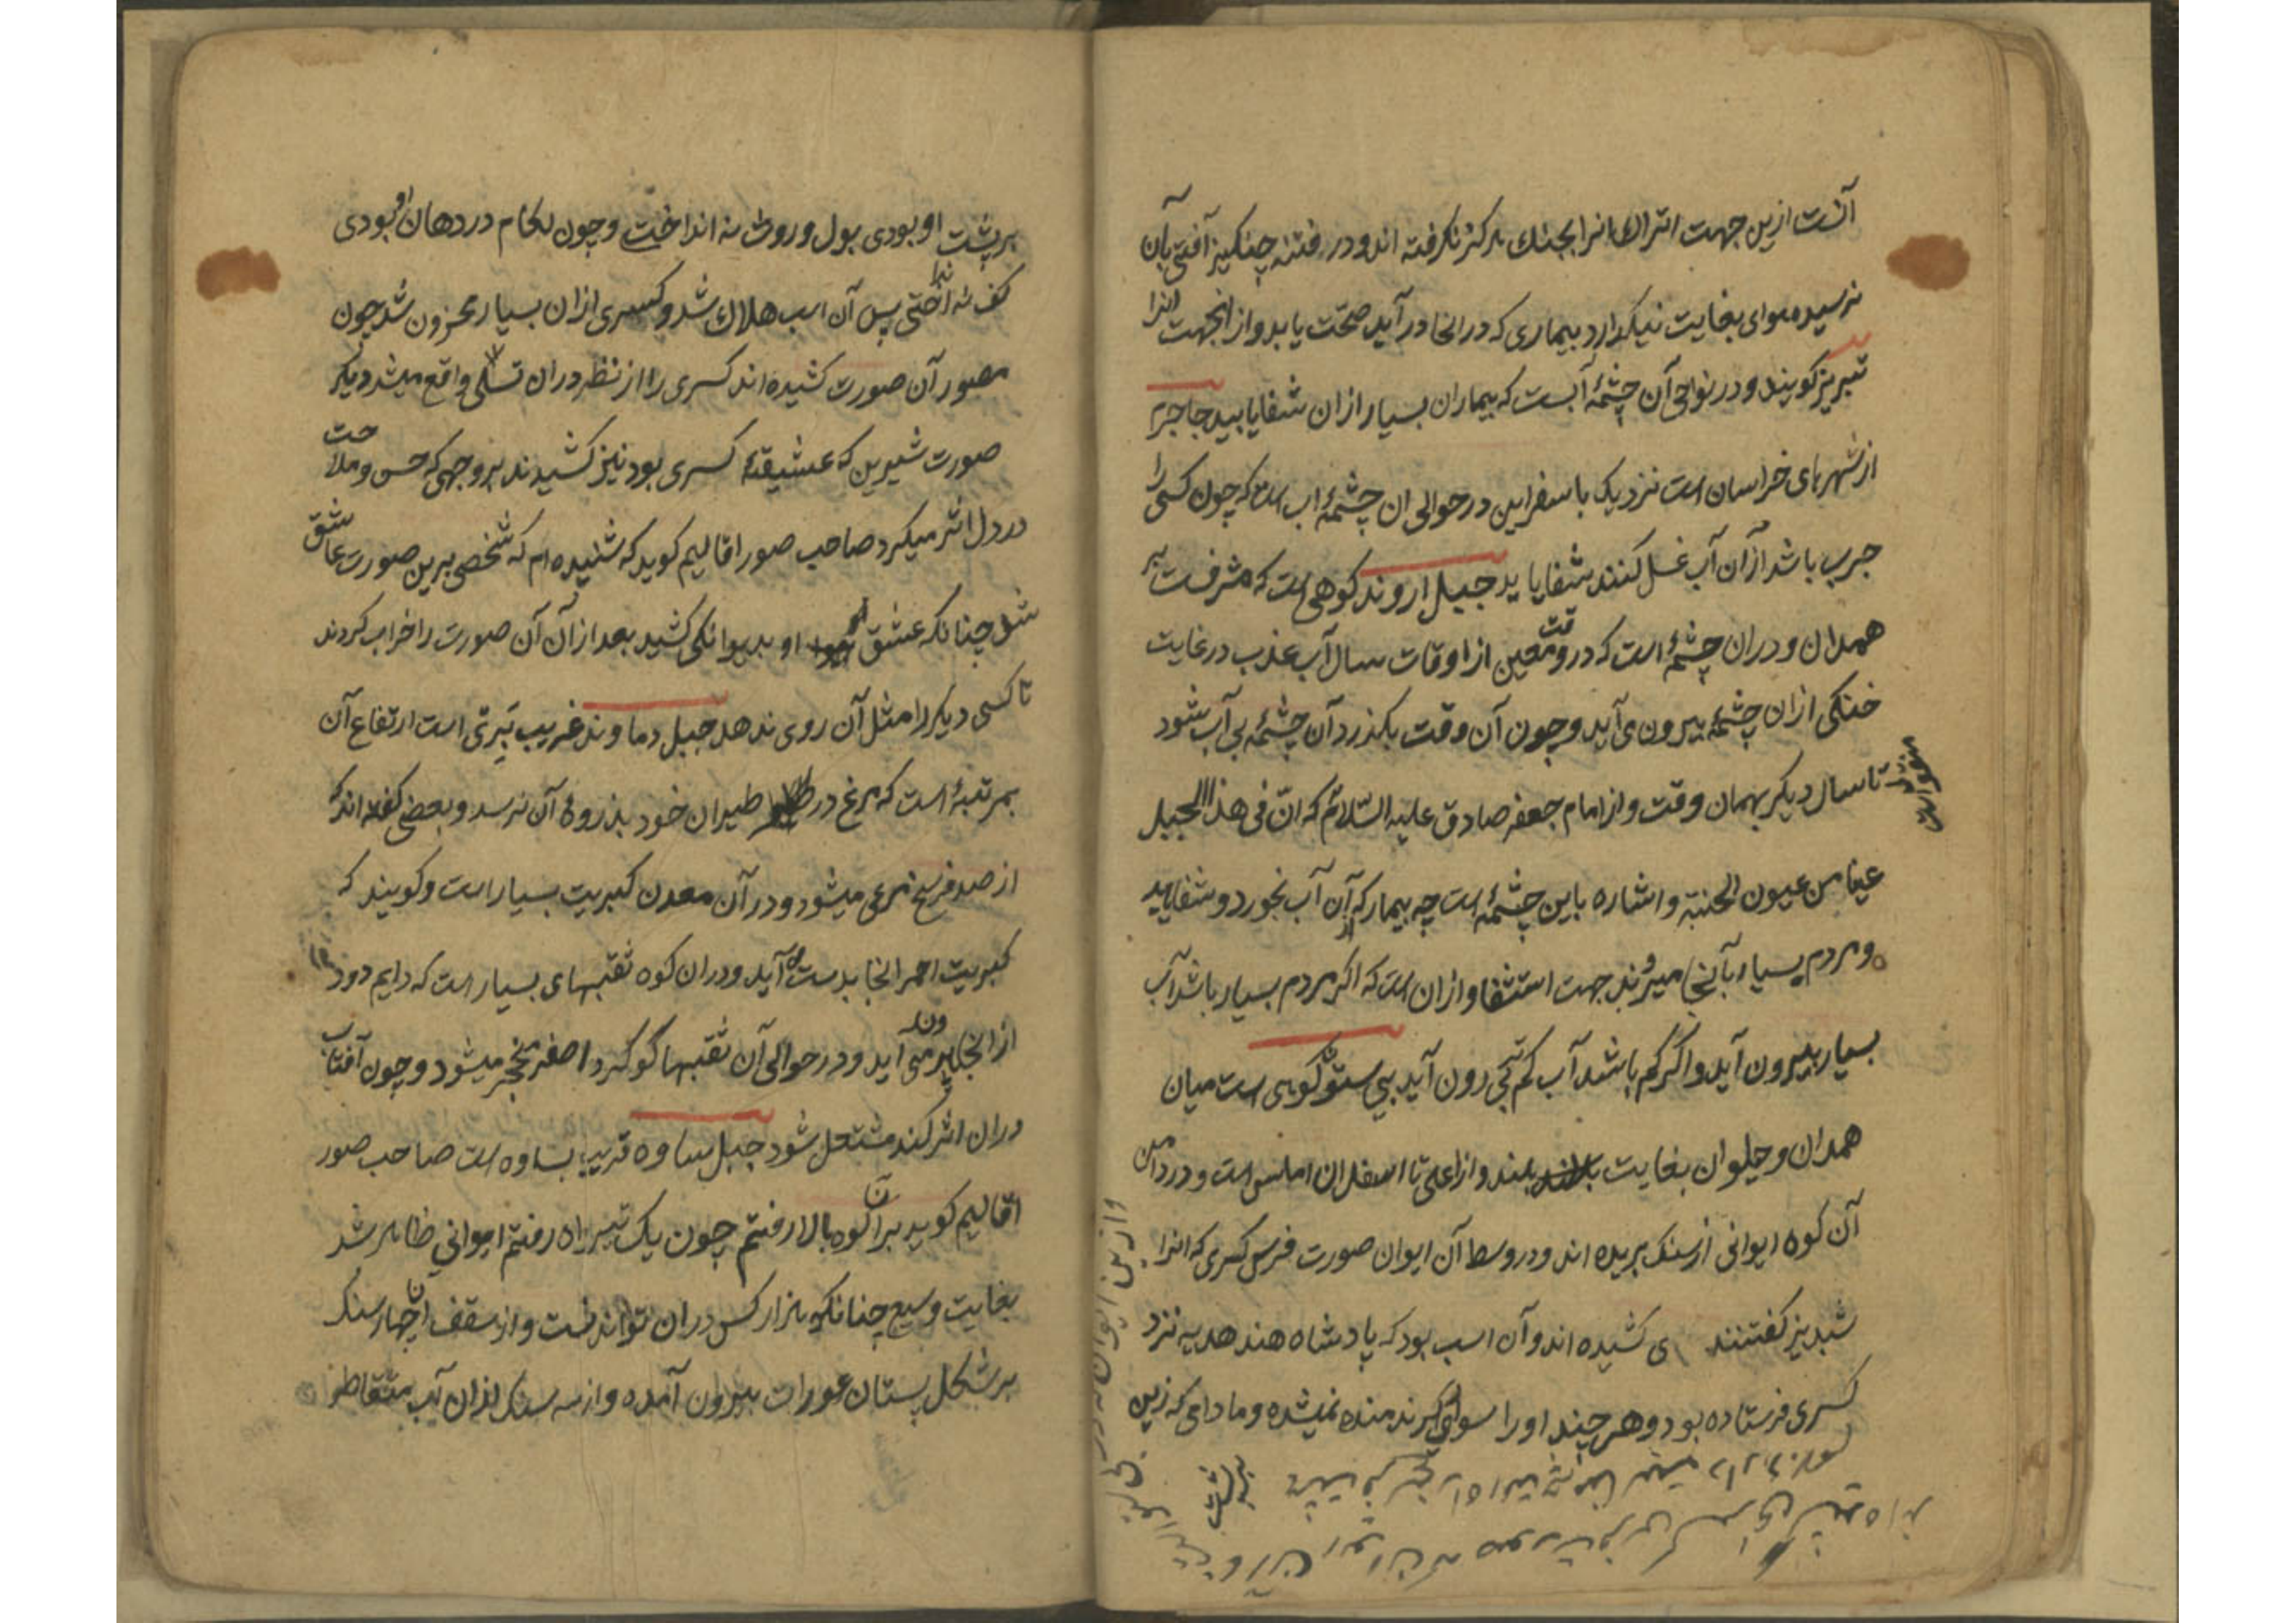 آنست ازین جهت اتراك انرا بجنك هرکز نکرفته اند و در فتنه چنکیز آفتی بآن
نرسیده هوای بغایت نیک دارد بیماری که در انجا در آید صحّت یابد و از انجهت انرا
تبریز کویند و در نواحی آن چشمۀ آبست که بیماران بسیار ازان شفا یابید جاجرم
از شهرهای خراسان است نزدیک باسفراین در حوالی ان چشمۀ اب است که چون کسی را
جرب باشد ازان آب غسل کنند شفا یابد جبل اروند کوهی است که مشرفست بر
همدان و دران چشمۀ است که در وقت معین از اوقات سال آب عذب در غایت
خنکی ازان چشمه بیرون می آید و چون آن وقت بکذرد آن چشمه بی آب شود
تا سال دیکر بهمان وقت و از امام جعفر صادق علیه السّلام که انّ فی هذا الجبل
عینا من عیون الجنته و اشاره باین چشمۀ است چه بیمار که از آن آب بخورد و شفا یابد
و مردم بسیار بآنجا میروند جهت استشفا و ازان است که اکر مردم بسیار باشد آب
بسیار بیرون آید و اکر کم باشد آب کم بیرون آید بی ستون کوهی است میان
همدان و حلوان بغایت بلند و از اعلی تا اسفل ان املس است و در دامن
آن کوه ایوانی از سنک بریده اند و در وسط آن ایوان صورت فرس کسری که انرا
شبدیز کفتند ی کشیده اند و آن اسب بود که پادشاه هند هدیه نزد
کسری فرستاده بود و هر چند او را سواری کردند منده نمیشده و مادامی که زین
بر پشت
بر پشت او بودی بول و روث نه انداخت و چون لکام در دهان او بودی
کف نه انداختی پس آن اسب هلاك شد و کسری ازان بسیار محزون شد چون
مصور آن صورت کشیده اند کسری را از نظر دران تسلی واقع میشد دیکر
صورت شیرین که عشیقۀ کسری بود نیز کشیدند بر وجهی که حسن و ملاحت
در دل اثر میکرد صاحب صور اقالیم کوید که شنیده ام که شخصی برین صورت عاشق
شد چنانکه عشق او بدیوانکی کشید بعد از آن آن صورت را خراب کردند
تا کسی دیکر را مثل آن روی ندهد جبل دماوند غریب تبرتی است ارتفاع آن
بمرتبۀ است که مرغ در طیران خود بذروۀ آن نرسد و بعضی کفته اند که
از صد فرسخ مرئی میشود و در آن معدن کبریت بسیار است و کویند که
کبریت احمر انجا بدست می آید و دران کوه ثقبهای بسیار است که دایم دود
از انجا بیرون می آید و در حوالی آن ثقبها کوکرد اصفر منجمد میشود و چون آفتاب
دران اثر کند مشتعل شود جبل ساوه قریب بساوه است صاحب صور
اقالیم کوید بر ان کوه بالا رفتم چون یک تیر راه رفتم ایوانی ظاهر شد
بغایت وسیع چنانکه هزار کس دران تواند نشست و از سقف ان چهار سنک
بر شکل پستان عورات بیرون آمده و از سه سنک ازان آب متقاطر